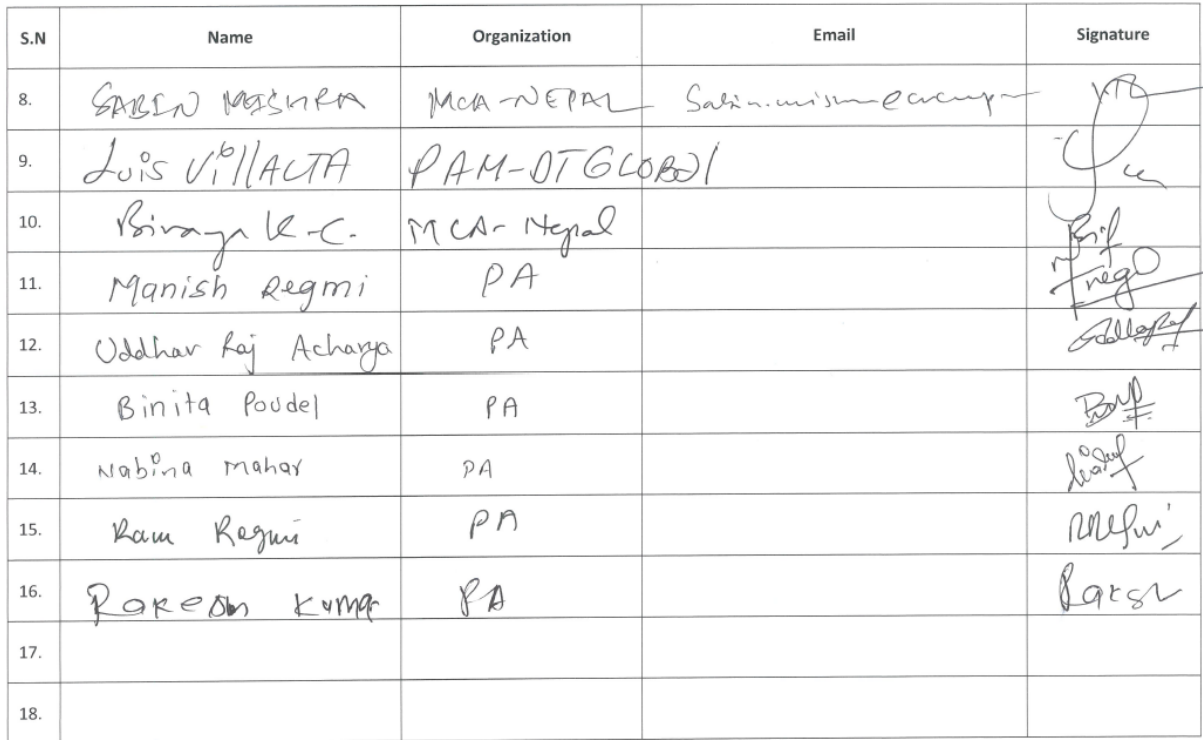 S.N Name Organization Email Signature
8. SABIN MISHRA MCA-NEPAL
9. Luis VillALTA PAM-DT GLOBAl
10. Binaya K.C. MCA-Nepal
11. Manish Regmi PA
12. Uddhav Raj Acharya PA
13. Binita Poudel PA
14. Nabina Mahar PA
15. Ram Regmi PA
16. Rakesh Kumar PA
17.
18.